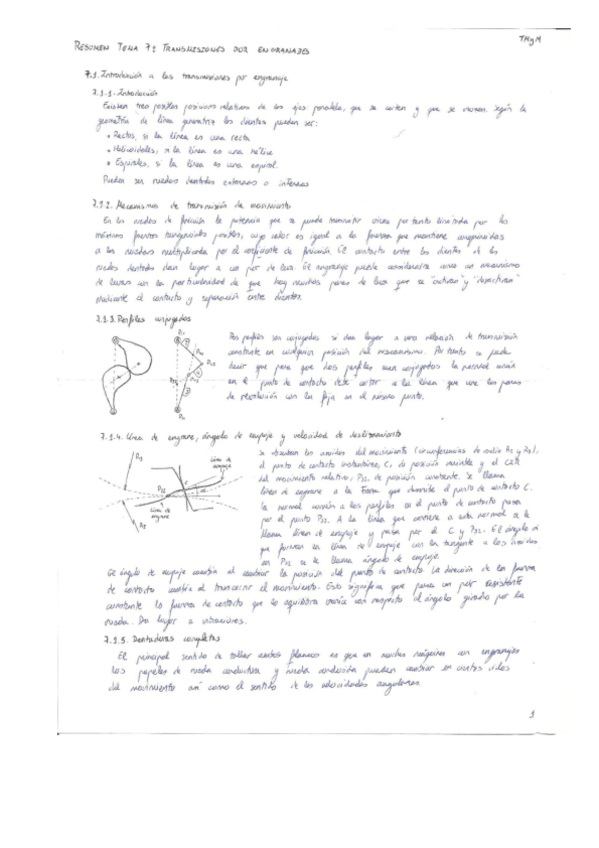 TMyM
RESUMEN TEMA 7: TRANSMISIONES POR ENGRANAJES
7.1. Introducción a las transmisiones por engranaje
7.1.1. Introducción
Existen tres posibles posiciones relativas de los ejes paralelos, que se corten y que se crucen. Según la
geometría de línea generatriz los dientes pueden ser:
• Rectos, si la línea es una recta
• Helicoidales, si la línea es una hélice
• Espirales, si la línea es una espiral.
Pueden ser ruedas dentadas externas o internas
7.1.2. Mecanismos de transmisión de movimiento
En las ruedas de fricción la potencia que se puede transmitir viene por tanto limitada por las
máximas fuerzas tangenciales posibles, cuyo valor es igual a la fuerza que mantiene comprimidas
a las ruedas multiplicada por el coeficiente de fricción. El contacto entre los dientes de las
ruedas dentadas dan lugar a un par de leva. El engranaje puede considerarse como un mecanismo
de levas con la particularidad de que hay muchos pares de levas que se "activan" y "desactivan"
mediante el contacto y separación entre dientes.
7.1.3. Perfiles conjugados
Dos perfiles son conjugados si dan lugar a una relación de transmisión
constante en cualquier posición del mecanismo. Por tanto se puede
decir que para que dos perfiles sean conjugados la normal común
en el punto de contacto debe cortar a la línea que une los pares
de revolución con la fija en el mismo punto.
7.1.4. Línea de engrane, ángulo de empuje y velocidad de deslizamiento
Línea de empuje
Línea de engrane
Se muestran los axoides del movimiento (circunferencias de radio R2 y R3),
el punto de contacto instantáneo, C, de posición variable y el CIR
del movimiento relativo, P32, de posición constante. Se llama
línea de engrane a la forma que describe el punto de contacto C.
la normal común a los perfiles en el punto de contacto pasa
por el punto P32. A la línea que contiene a esta normal se le
llama línea de empuje y pasa por el C y P32. El ángulo α
que forman la línea de empuje con la tangente a los axoides
en P32 se le llama ángulo de empuje.
El ángulo de empuje cambia al cambiar la posición del punto de contacto. La dirección de las fuerzas
de contacto cambia al transcurrir el movimiento. Esto significa que para un par resistente
constante la fuerza de contacto que lo equilibra varíe con respecto al ángulo girado por la
rueda. Da lugar a vibraciones.
7.1.5. Dentaduras completas
El principal sentido de tallar ambos flancos es que en muchas máquinas con engranajes
los papeles de rueda conductora y rueda conducida pueden cambiar en ciertos ciclos
del movimiento así como el sentido de las velocidades angulares.